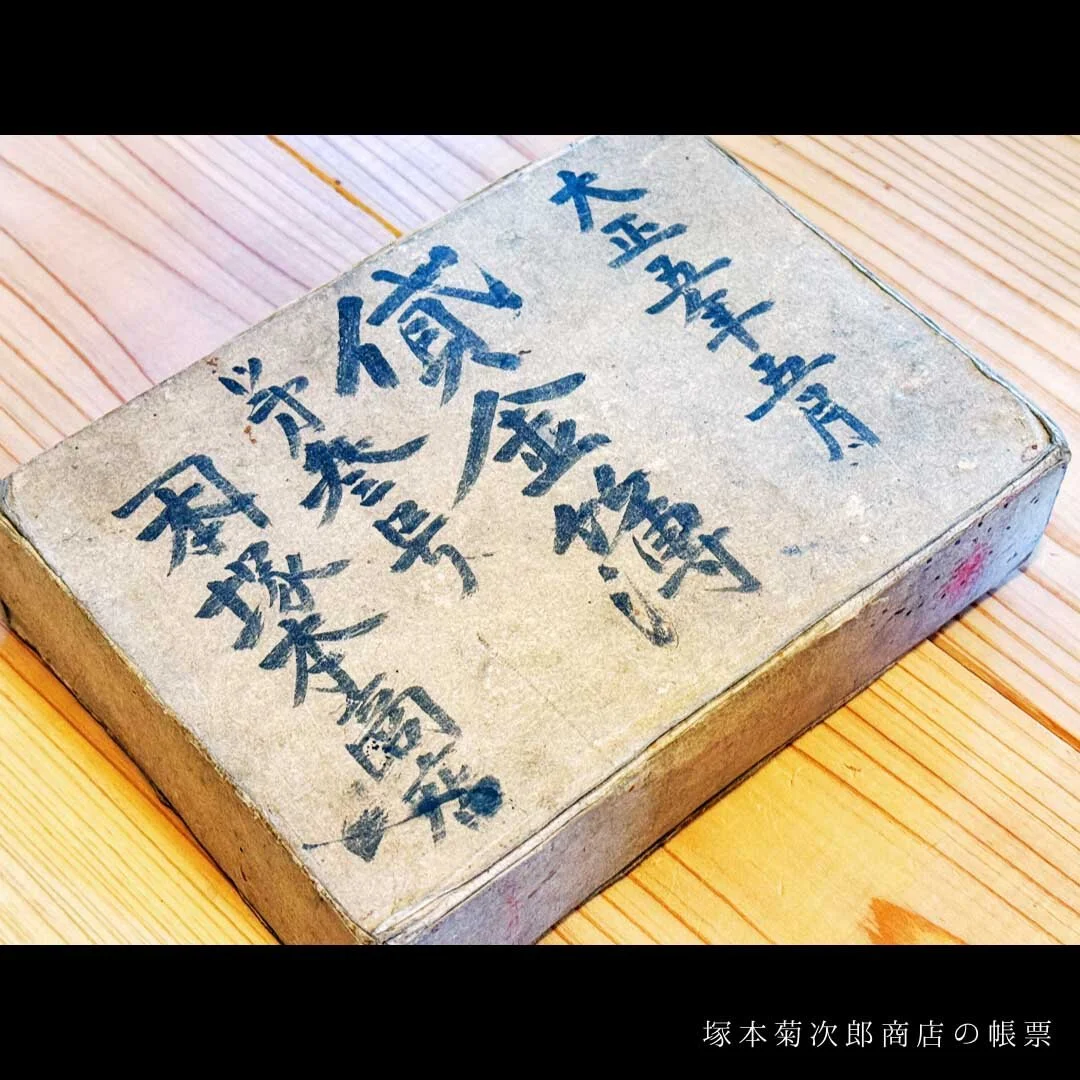 大正五年五月
貸金簿
第参号
塚本商店
塚本菊次郎商店の帳票